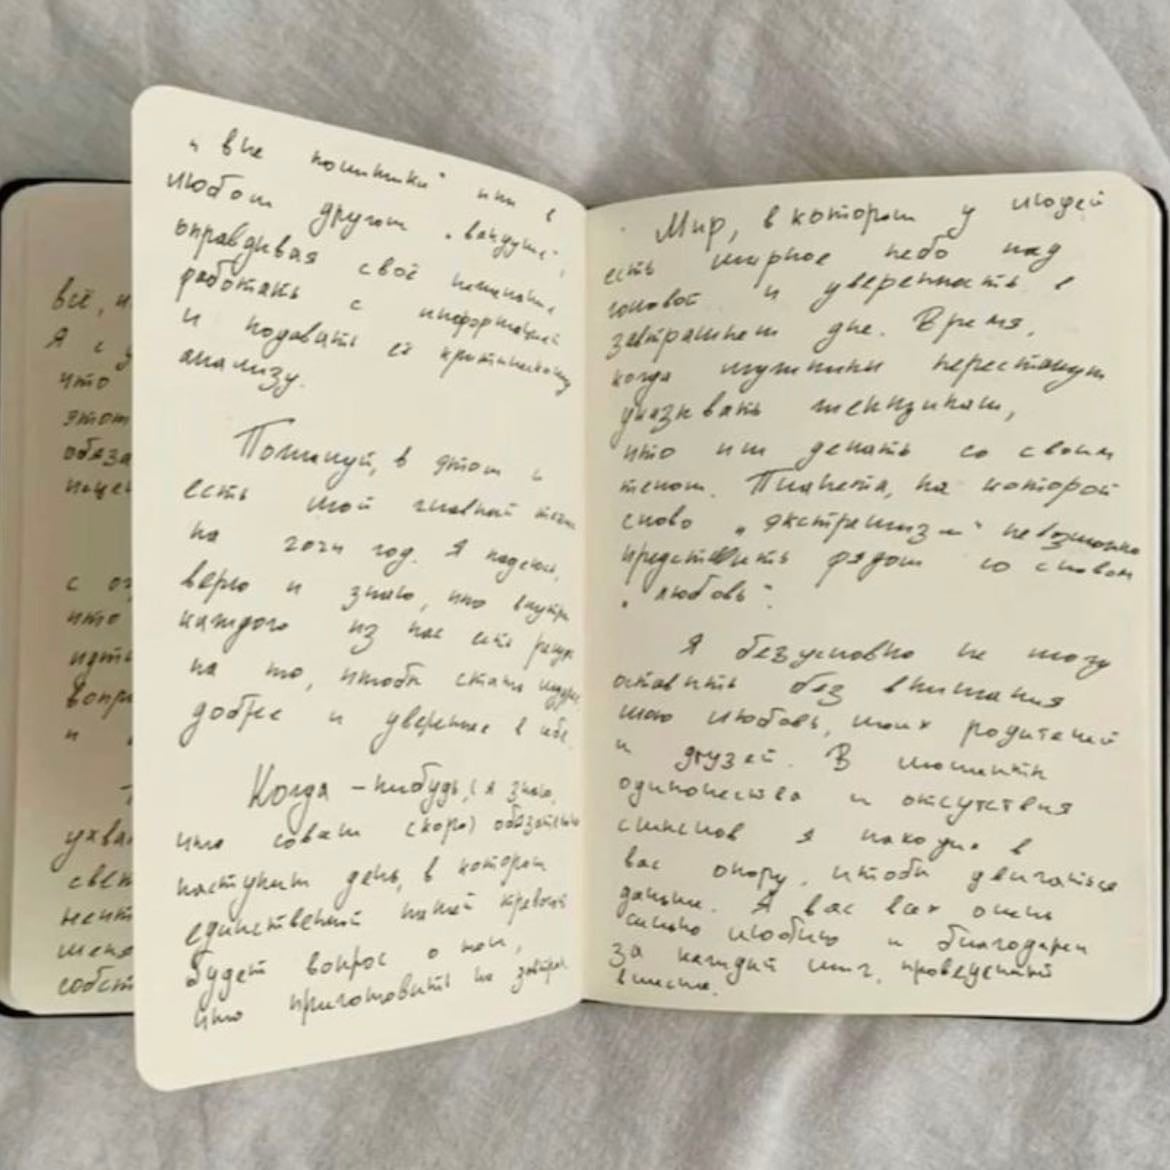 всё, и
Я с у
что
этот
обяза
с ог
что
идти
вопр
и
ухва
свет
мент
меня
собст
„вне политики“ или в
любом другом „вакууме“,
оправдывая своё нежелание
работать с информацией
и подавать её критическому
анализу.
Пожалуй, в этом и
есть мой главный тезис
на 2024 год. Я надеюсь,
верю и знаю, что внутри
каждого из нас есть ресурс
на то, чтобы стать мудрее,
добрее и увереннее в себе.
Когда-нибудь, (я знаю,
что совсем скоро) обязательно
наступит день, в котором
единственной нашей тревогой
будет вопрос о том,
что приготовить на завтрак
Мир, в котором у людей
есть мирное небо над
головой и уверенность в
завтрашнем дне. Время,
когда мужчины перестанут
указывать женщинам,
что им делать со своим
телом. Планета, на которой
слово „экстремизм“ невозможно
представить рядом со словом
„любовь“.
Я безусловно не могу
оставить без внимания
мою любовь, моих родителей
и друзей. В моменты
одиночества и отсутствия
смыслов я нахожу в
вас опору, чтобы двигаться
дальше. Я вас всех очень
сильно люблю и благодарен
за каждый миг, проведённый
вместе.